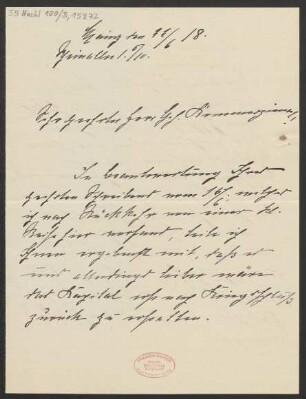 SS Nachl 100/3, 15872
Mainz den 22/6 18.
Rheinallee 1 5/10.
Sehr geehrter Herr G. Kommerzienrat,
In Beantwortung Ihres
geehrten Schreibens vom 16/6. welches
ich nach Rückkehr von einer kl.
Reise hier vorfand, teile ich
Ihnen ergebenst mit, daß es
uns allerdings lieber wäre
das Kapital erst nach Kriegsschluß
zurück zu erhalten.